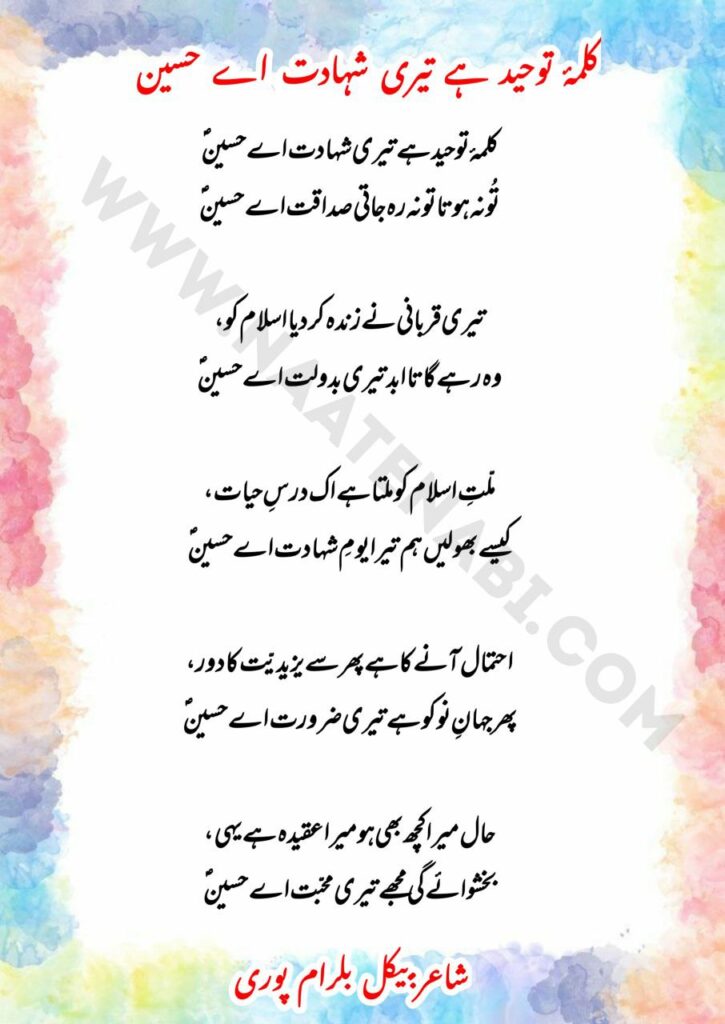 کلمۂ توحید ہے تیری شہادت اے حسین
کلمۂ توحید ہے تیری شہادت اے حسینؑ
تُو نہ ہوتا تو نہ رہ جاتی صداقت اے حسینؑ
تیری قربانی نے زندہ کر دیا اسلام کو،
وہ رہے گا تا ابد تیری بدولت اے حسینؑ
ملّتِ اسلام کو ملتا ہے اک درسِ حیات،
کیسے بھولیں ہم تیرا یومِ شہادت اے حسینؑ
احتمال آنے کا ہے پھر سے یزیدیّت کا دور،
پھر جہانِ نو کو ہے تیری ضرورت اے حسینؑ
حال میرا کچھ بھی ہو میرا عقیدہ ہے یہی،
بخشوائے گی مجھے تیری محبّت اے حسینؑ
شاعر:بیکل بلرام پوری
WWW.NAATENABI.COM